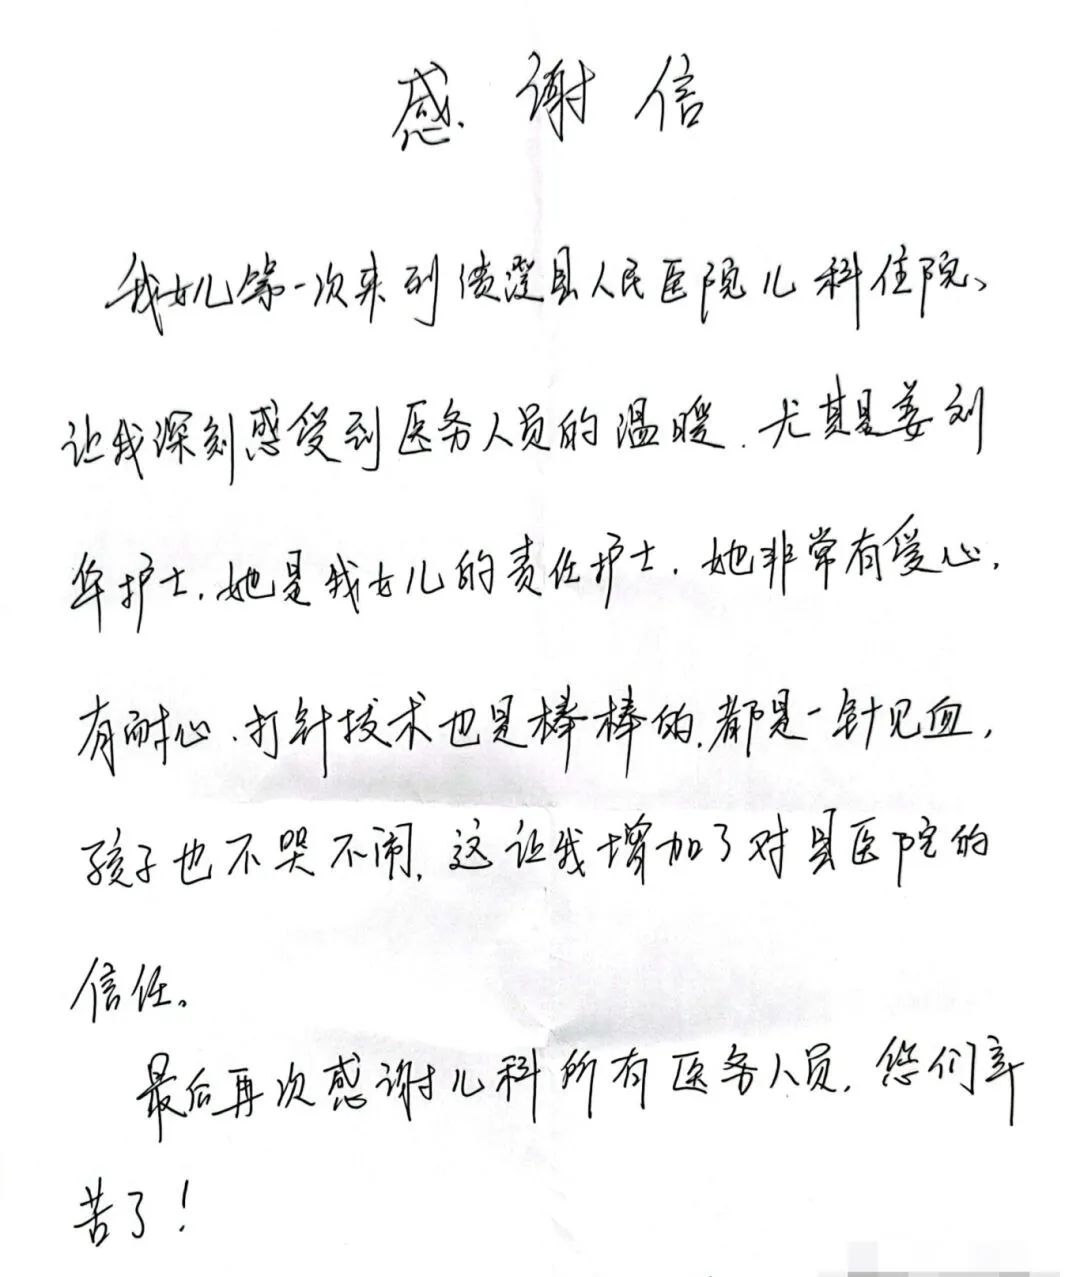 感谢信
我女儿第一次来到澄县人民医院儿科住院、
让我深刻感受到医务人员的温暖.尤其是姜刘
华护士.她是我女儿的责任护士.她非常有爱心,
有耐心.打针技术也是棒棒的.都是一针见血,
孩子也不哭不闹,这让我增加了对县医院的
信任。
最后再次感谢儿科所有医务人员.您们辛
苦了!